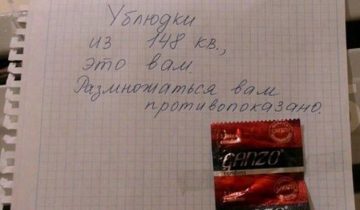 Ублюдки
из 148 кв.,
это вам.
Размножаться вам
противопоказано.
GANZO